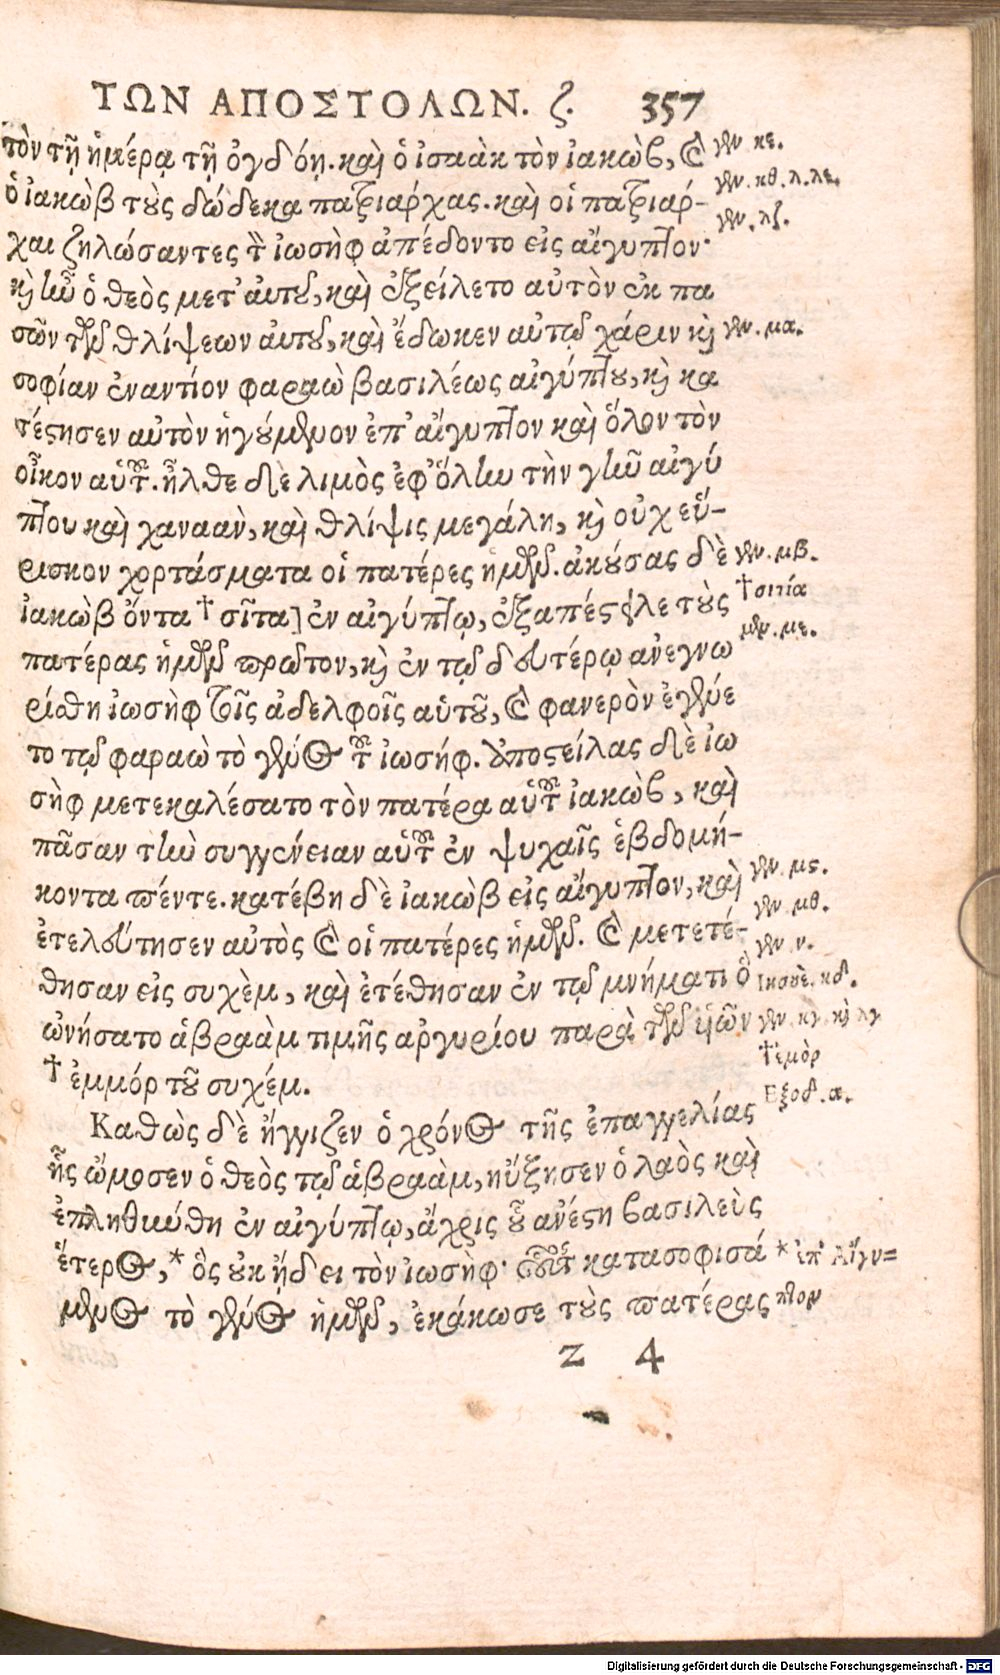 ΤΩΝ ΑΠΟΣΤΟΛΩΝ. ζ. 357
τὸν τῇ ἡμέρᾳ τῇ ὀγδόῃ. καὶ ὁ ἰσαὰκ τὸν ἰακὼβ, καὶ γεν. κε.
ὁ ἰακὼβ τοὺς δώδεκα πατριάρχας. καὶ οἱ πατριάρ- γεν. κθ. λ. λε.
χαι ζηλώσαντες τὸν ἰωσὴφ ἀπέδοντο εἰς αἴγυπτον· γεν. λζ.
καὶ ἦν ὁ θεὸς μετ' αὐτοῦ, καὶ ἐξείλετο αὐτὸν ἐκ πα
σῶν τῶν θλίψεων αὐτοῦ, καὶ ἔδωκεν αὐτῷ χάριν καὶ γεν. μα.
σοφίαν ἐναντίον φαραὼ βασιλέως αἰγύπτου, καὶ κα
τέστησεν αὐτὸν ἡγούμενον ἐπ' αἴγυπτον καὶ ὅλον τὸν
οἶκον αὑτοῦ. ἦλθε δὲ λιμὸς ἐφ' ὅλην τὴν γῆν αἰγύ
πτου καὶ χαναὰν, καὶ θλίψις μεγάλη, καὶ οὐχ εὕ-
ρισκον χορτάσματα οἱ πατέρες ἡμῶν. ἀκούσας δὲ γεν. μβ.
ἰακὼβ ὄντα † σῖτα] ἐν αἰγύπτῳ, ἐξαπέστειλε τοὺς † σιτία
πατέρας ἡμῶν πρῶτον, καὶ ἐν τῷ δευτέρῳ ἀνεγνω γεν. με.
ρίσθη ἰωσὴφ τοῖς ἀδελφοῖς αὑτοῦ, καὶ φανερὸν ἐγένε
το τῷ φαραὼ τὸ γένος τοῦ ἰωσήφ. ἀποστείλας δὲ ἰω
σὴφ μετεκαλέσατο τὸν πατέρα αὑτοῦ ἰακὼβ, καὶ
πᾶσαν τὴν συγγένειαν αὑτοῦ ἐν ψυχαῖς ἑβδομή-
κοντα πέντε. κατέβη δὲ ἰακὼβ εἰς αἴγυπτον, καὶ γεν. μς.
ἐτελεύτησεν αὐτὸς καὶ οἱ πατέρες ἡμῶν. καὶ μετετέ- γεν. μθ.
θησαν εἰς συχὲμ, καὶ ἐτέθησαν ἐν τῷ μνήματι ὃ γεν. ν.
Ιησοὺ. κδ.
ὠνήσατο ἁβραὰμ τιμῆς ἀργυρίου παρὰ τῶν ὑιῶν γεν. κγ. καὶ λγ
† ἐμμόρ τοῦ συχέμ. † ἐμὸρ
Εξοδ. α.
Καθὼς δὲ ἤγγιζεν ὁ χρόνος τῆς ἐπαγγελίας
ἧς ὤμοσεν ὁ θεὸς τῷ ἁβραὰμ, ηὔξησεν ὁ λαὸς καὶ
ἐπληθύνθη ἐν αἰγύπτῳ, ἄχρις οὗ ἀνέστη βασιλεὺς
ἕτερος, * ὃς οὐκ ᾔδει τὸν ἰωσὴφ· οὗτος κατασοφισά * ἐπ' Αἴγυ=
μενος τὸ γένος ἡμῶν, ἐκάκωσε τοὺς πατέρας πτον
Z 4
Digitalisierung gefördert durch die Deutsche Forschungsgemeinschaft - DFG